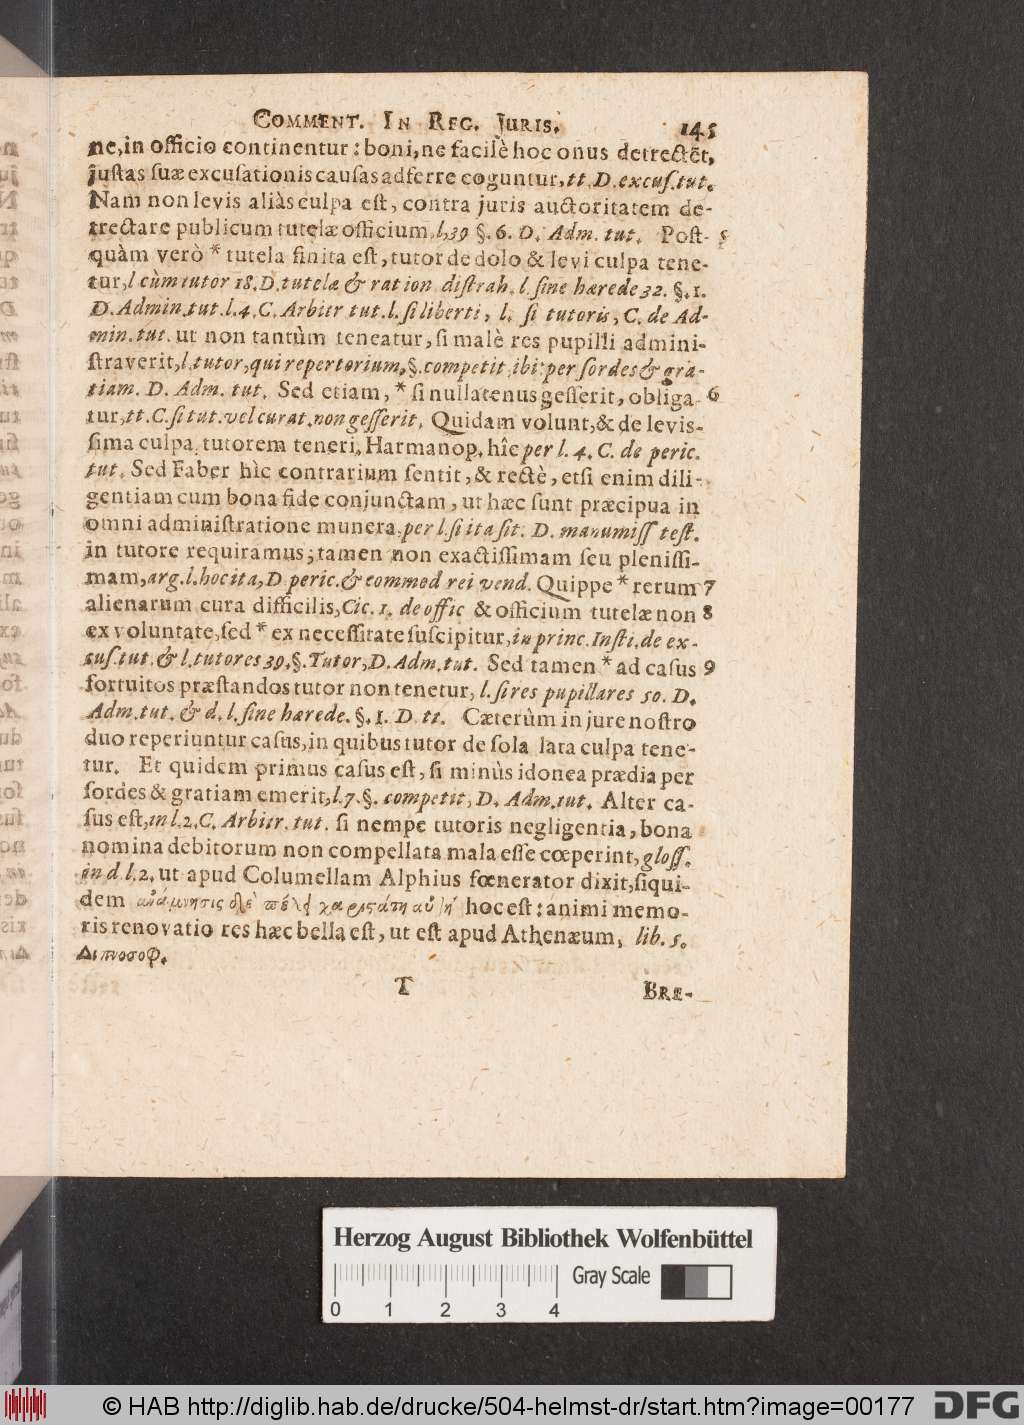 COMMENT. IN REG. JURIS. 145
ne, in officio continentur: boni, ne facilè hoc onus detrectēt,
justas suæ excusationis causas adferre coguntur, tt. D. excus. tut.
Nam non levis aliàs culpa est, contra juris auctoritatem de-
trectare publicum tutelæ officium, l. 39 §. 6. D. Adm. tut. Post- 5
quàm verò * tutela finita est, tutor de dolo & levi culpa tene-
tur, l cùm tutor 18. D. tutelæ & ration. distrah. l. sine hærede 32. §. 1.
D. Admin. tut. l. 4. C. Arbitr tut. l. si liberti, l. si tutoris, C. de Ad-
min. tut. ut non tantùm teneatur, si malè res pupilli admini-
straverit, l. tutor, qui repertorium, §. competit, ibi: per sordes & gra-
tiam. D. Adm. tut. Sed etiam, * si nullatenus gesserit, obliga- 6
tur, tt. C. si tut. vel curat. non gesserit. Quidam volunt, & de levis-
sima culpa tutorem teneri, Harmanop. hîc per l. 4. C. de peric.
tut. Sed Faber hìc contrarium sentit, & rectè, etsi enim dili-
gentiam cum bona fide conjunctam, ut hæc sunt præcipua in
omni administratione munera per l. si ita sit. D. manumiss test.
in tutore requiramus; tamen non exactissimam seu plenissi-
mam, arg. l. hocita, D. peric. & commod rei vend. Quippe * rerum 7
alienarum cura difficilis, Cic. 1. de offic & officium tutelæ non 8
ex voluntate, sed * ex necessitate suscipitur, in princ. Insti. de ex-
cus. tut. & l. tutores 39. §. Tutor, D. Adm. tut. Sed tamen * ad casus 9
fortuitos præstandos tutor non tenetur, l. si res pupillares 50. D.
Adm. tut. & d. l. sine hærede. §. 1. D tt. Cæterùm in jure nostro
duo reperiuntur casus, in quibus tutor de sola lata culpa tene-
tur. Et quidem primus casus est, si minùs idonea prædia per
sordes & gratiam emerit, l. 7. §. competit, D. Adm. tut. Alter ca-
sus est, in l. 2. C. Arbitr. tut. si nempe tutoris negligentia, bona
nomina debitorum non compellata mala esse cœperint, gloss.
in d l. 2. ut apud Columellam Alphius fœnerator dixit, siqui-
dem hoc est: animi memo-
ris renovatio res hæc bella est, ut est apud Athenæum, lib. 5.
Διπνοσοφ.
T BRE-
Herzog August Bibliothek Wolfenbüttel
Gray Scale
0 1 2 3 4
© HAB http://diglib.hab.de/drucke/504-helmst-dr/start.htm?image=00177 DFG